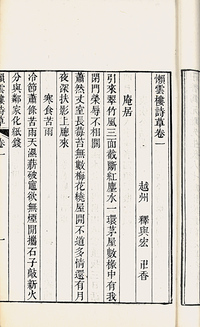 懶雲樓詩草卷一
越州 釋與宏 卍香
庵居
引來翠竹風三面截斷紅塵水一環茅屋數椽中有我
閉門榮辱不相關
蕭然丈室長莓苔無數梅花繞屋開不道多情還有月
夜深扶影上廳來
寒食苦雨
冷節蕭條苦雨天濕薪破竈欲無煙閒攜石子敲新火
分與鄰家化紙錢
懶雲樓詩草 卷一 一